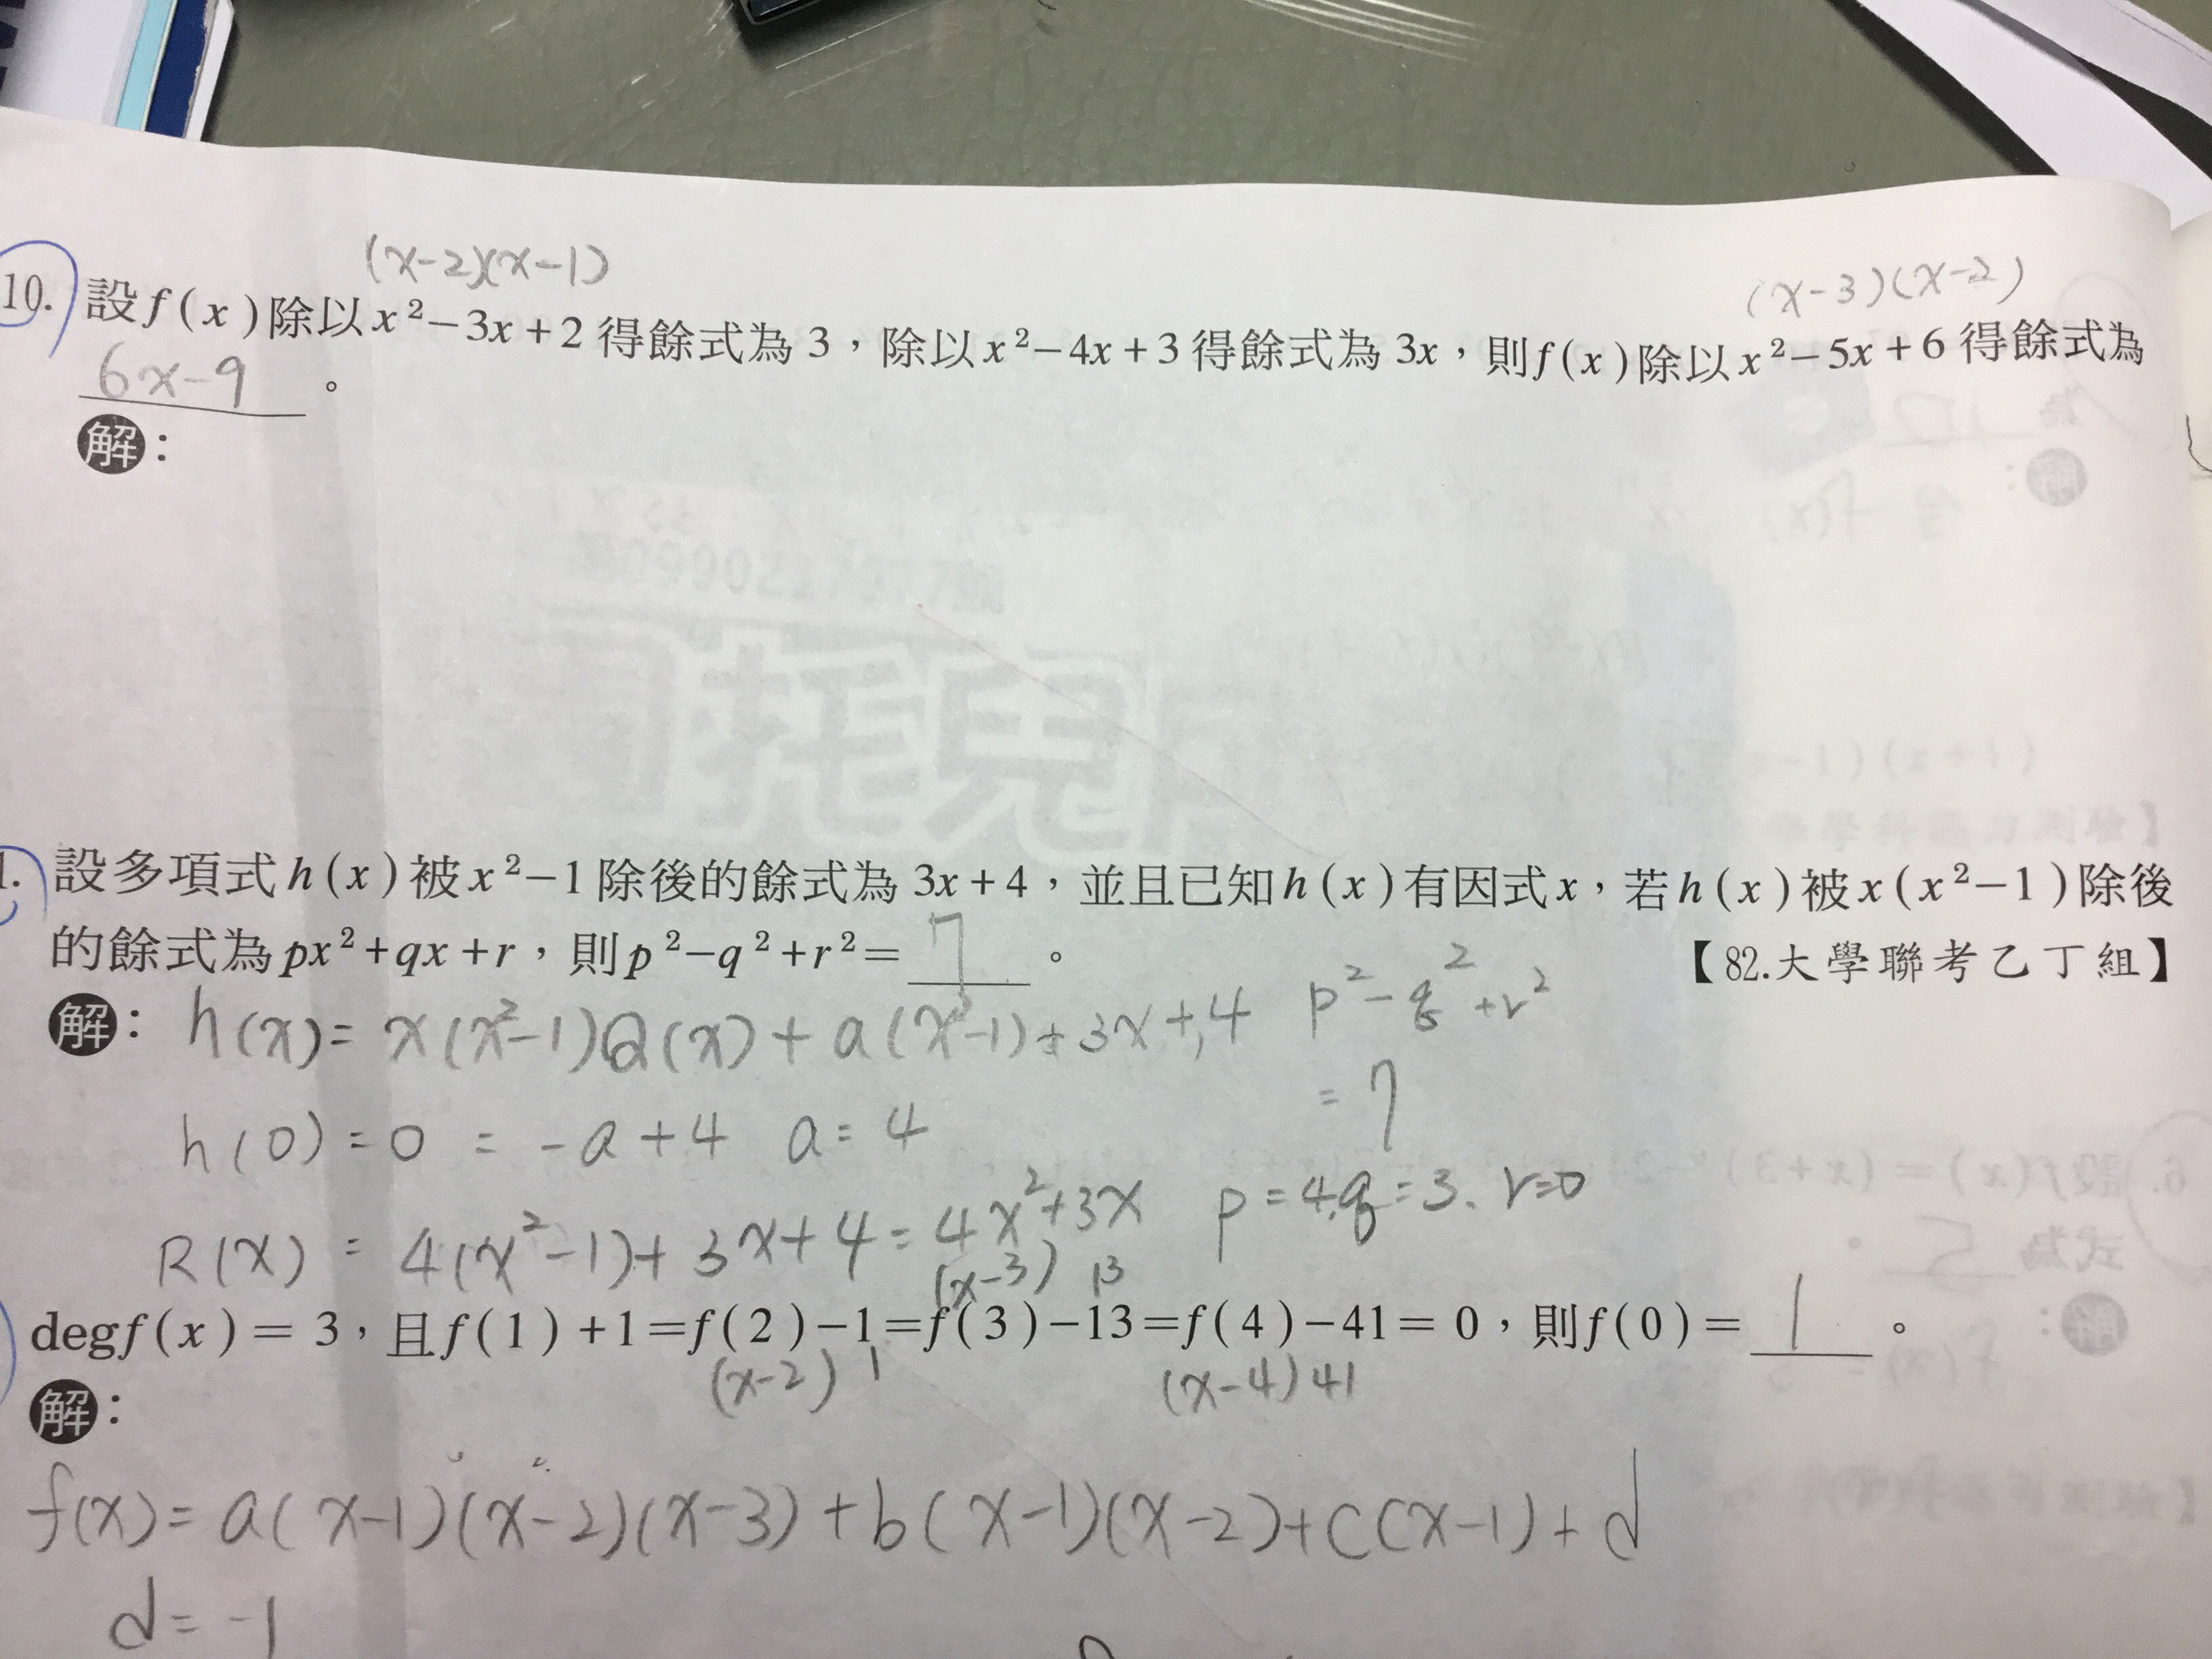 (x-2)(x-1)
(x-3)(x-2)
10. 設f(x)除以x²-3x+2得餘式為3，除以x²-4x+3得餘式為3x，則f(x)除以x²-5x+6得餘式為
6x-9 。
解：
1. 設多項式h(x)被x²-1除後的餘式為3x+4，並且已知h(x)有因式x，若h(x)被x(x²-1)除後
的餘式為px²+qx+r，則p²-q²+r²= 7 。 【82.大學聯考乙丁組】
解： h(x)= x(x²-1)Q(x)+a(x²-1)+3x+4 p²-q²+r²
= 7
h(0)=0 = -a+4 a=4
R(x) = 4(x²-1)+3x+4=4x²+3x p=4,q=3. r=0
(x-3) 13
degf(x)=3，且f(1)+1=f(2)-1=f(3)-13=f(4)-41=0，則f(0)= 1 。
(x-2) 1 (x-4) 41
解：
f(x)=a(x-1)(x-2)(x-3)+b(x-1)(x-2)+c(x-1)+d
d=-1